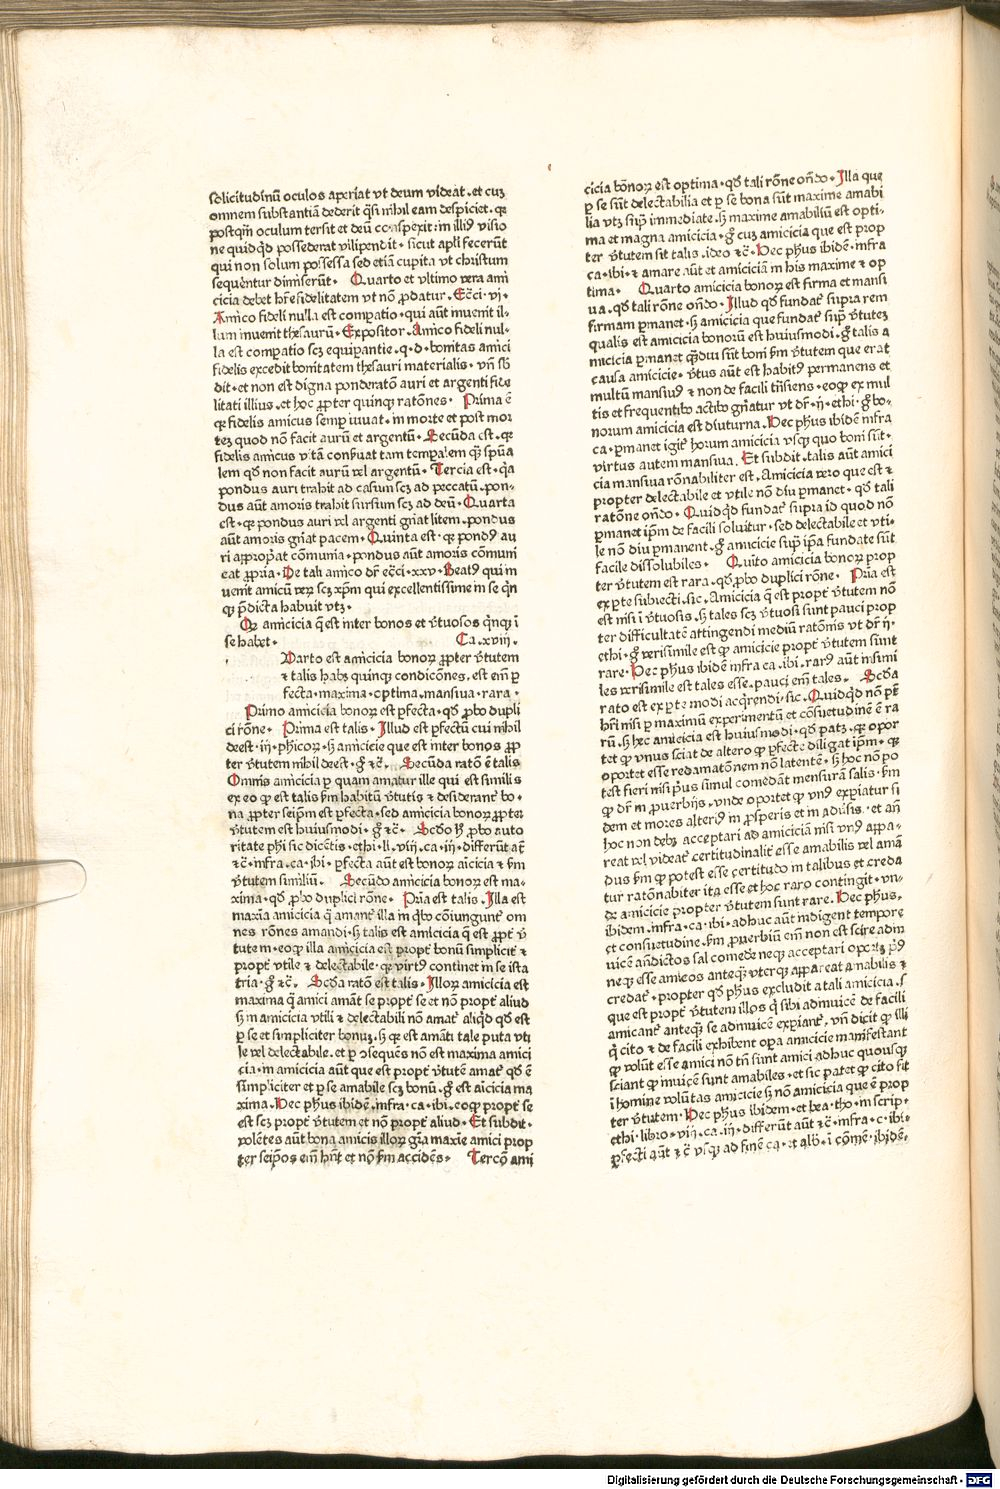 solicitudinū oculos aperiat vt deum videat. et cuȝ
omnem substantiā dederit q̄si nihil eam despiciet. qꝛ
postqm̄ oculum tersit et deū conspexit in illiꝰ visio
ne quidqd possederat vilipendit. sicut apli fecerūt
qui non solum possessa sed etiā cupita vt christum
sequerentur dimiserūt. Quarto et vltimo vera ami
cicia debet hr̄e fidelitatem vt nō ꝓdatur. Ecc̄i. vi.
Amico fideli nulla est compatio. qui aūt inuenit il-
lum inuenit thesaurū. Expositor. Amico fideli nul-
la est comꝑatio scȝ equiparantie. q. d. bonitas amici
fidelis excedit bonitatem thesauri materialis. vn̄ sb̄
dit. et non est digna ponderatō auri et argenti fide
litati illius. et hoc ꝓpter quinqꝫ ratōnes. Prima ē
qꝛ fidelis amicus semꝑ iuuat. in morte et post mor
teȝ quod non facit aurū et argentū. Secūda est. qꝛ
fidelis amicus vitā conseruat tam temꝑalem qꝫ spūa
lem qd̄ non facit aurū vel argentū. Tercia est. qꝛ
pondus auri trahit ad casum scȝ ad peccatū. pon-
dus aūt amoris trahit sursum scȝ ad deū. Quarta
est. qꝛ pondus auri vel argenti gn̄at litem. pondus
aūt amoris gn̄at pacem. Quinta est. qꝛ pondꝰ au
ri appropriat cōmunia. pondus aūt amoris cōmuni
cat ꝓpria. De tali amico dr̄ ecc̄i. xxv. Beatꝰ qui in
uenit amicū verꝫ scȝ xp̄m qui excellentissime in se qn̄
qꝫ p̄dicta habuit vtȝ.
Qꝛ amicicia q̄ est inter bonos et v̄tuosos qn̄qꝫ ī
se habet. Ca. xviij.
Quarto est amicicia bonoꝝ ꝓpter v̄tutem
⁊ talis habȝ quinqꝫ condicōnes. est em̄ ꝑ
fecta. maxima. optima. mansiua. rara.
Primo amicicia bonoꝝ est ꝑfecta. qd̄ ꝓbo dupli
ci rōne. Prima est talis. Illud est ꝑfectū cui nihil
deest. iij. phicoꝝ. sꝫ amicicie que est inter bonos ꝓp
ter v̄tutem nihil deest. g̊ ⁊c̄. Secūda ratō ē talis
Omnis amicicia ꝑ quam amatur ille qui est similis
ex eo ꝙ est talis s̄m habitū v̄tutis ⁊ desiderant̄ bo-
na ꝓpter seipm̄ est ꝑfecta. sed amicicia bonoꝝ ꝓpter
v̄tutem est huiusmodi. g̊ ⁊c̄. Scd̄o hꝫ ꝓbo auto
ritate phi sic dicētis. ethi. li. viij. ca. iij. differūt at̄
⁊c̄. infra. ca. ibi. ꝑfecta aūt est bonoꝝ aīcicia ⁊ s̄m
v̄tutem similiū. Secūdo amicicia bonoꝝ est ma-
xima. qd̄ ꝓbo duplici rōne. Pria est talis. Illa est
maxīa amicicia q̄ amant̄ illa in qb̄o cōiungunt̄ om
nes rōnes amandi. sꝫ talis est amicicia q̄ est ꝓpt̄ v̄
tutem. eo ꝙ illa amicicia est propt̄ bonū simplicit̄ ⁊
propt̄ vtile ⁊ delectabile. qꝛ virtꝰ continet in se ista
tria. g̊ ⁊c̄. Scd̄a ratō est talis. Illoꝝ amicicia est
maxima q̄ amici amāt se propt̄ se et nō propt̄ aliud
sꝫ in amicicia vtili ⁊ delectabili nō amat̄ aliqd qd̄ est
ꝑ se et simpliciter bonuȝ. sꝫ qꝛ est amāti tale puta vti
le vel delectabile. et ꝑ ↄsequēs nō est maxima amici
cia. in amicicia aūt que est propt̄ v̄tutē amat̄ qd̄ ē
simpliciter et ꝑ se amabile scȝ bonū. g̊ est aīcicia ma
xima. Hec phūs ibidē. infra. ca. ibi. eo ꝙ propt̄ se
est scȝ propt̄ v̄tutem et nō propt̄ aliud. Et subdit.
volētes aūt bona amicis illoꝝ gr̄a maxīe amici prop
ter seipsos em̄ hn̄t et nō s̄m accidēs. Tercō ami
cicia bōnoꝝ est optima. qd̄ tali rōne ondo. Illa que
ꝑ se sūt delectabilia et ꝑ se bona sūt maxime amabi
lia vtȝ suꝑ immediate. sꝫ maxime amabiliū est opti-
ma et magna amicicia. g̊ cuȝ amicicia que est prop
ter v̄tutem sit talis. ideo ⁊c̄. Hec phūs ibidē. infra
ca. ibi. ⁊ amare aūt et amiciciā in his maxime ⁊ op
tima. Quarto amicicia bonoꝝ est firma et mansi
ua. qd̄ tali rōne ondo. Illud qd̄ fundat̄ supra rem
firmam ꝑmanet. sꝫ amicicia que fundat̄ suꝑ v̄tuteȝ
qualis est amicicia bonorū est huiusmodi. g̊ talis a
micicia ꝑmanet qm̄diu sūt boni s̄m v̄tutem que erat
causa amicicie. v̄tus aūt est habitꝰ permanens et
multū mansiuꝰ ⁊ non de facili trāsiens. eo ꝙ ex mul
tis et frequentibꝰ actibꝰ gn̄atur vt dr̄. ij. ethi. g̊ bo-
norum amicicia est diuturna. Hec phūs ibidē infra
ca. ꝑmanet igit̄ horum amicicia vsqꝫ quo boni sūt.
virtus autem mansiua. Et subdit. talis aūt amici
cia mansiua rōnabiliter est. Amicicia vero que est ⁊
propter delectabile et vtile nō diu ꝑmanet. qd̄ tali
ratōne ondo. Quidqd fundat̄ supra id quod nō
ꝑmanet ipm̄ de facili soluitur. sed delectabile et vti-
le nō diu ꝑmanent. g̊ amicicie suꝑ ip̄a fundate sūt
facile dissolubiles. Quīto amicicia bonoꝝ prop
ter v̄tutem est rara. qd̄ ꝓbo duplici rōne. Pria est
ex ꝑte subiecti. sic. Amicicia q̄ est propt̄ v̄tutem nō
est nisi ī v̄tuosis. sꝫ tales scȝ v̄tuosi sunt pauci prop
ter difficultatē attingendi mediū ratōnis vt dr̄ ij.
ethi. g̊ verisimile est ꝙ amicicie propt̄ v̄tutem sunt
rare. Hec phūs ibidē infra ca. ibi. rarꝰ aūt insimi
les verisimile est tales esse. pauci em̄ tales. Scd̄a
rato est ex ꝑte modi acqr̄endi. sic. Quidqd nō pt̄
hr̄i nisi ꝑ maximū experimentū et cōsuetudinē ē ra
rū. sꝫ hec amicicia est huiusmodi. qd̄ patȝ. qꝛ opor
tet ꝙ vnus sciat de altero ꝙ ꝑfecte diligat ipm̄. qꝛ
oportet esse redamatōnem nō latentē. sꝫ hoc nō po
test fieri nisi pꝰus simul comedant mensurā salis. s̄m
ꝙ dr̄ in ꝓuerbijs. vnde oportet ꝙ vnꝰ experiatur si
dem et mores alteriꝰ in ꝓsperis et in aduersis. et an̄
hoc non debȝ acceptari ad amiciciā nisi vnꝰ appa-
reat vel videat̄ certitudinalit̄ esse amabilis vel amā
dus s̄m ꝙ potest esse certitudo in talibus et creda
tur ratōnabiter ita esse et hoc raro contingit. vn-
de amicicie propter v̄tutem sunt rare. Hec phūs.
ibidem. infra. ca. ibi. adhuc aūt indigent tempore
et consuetudine. s̄m ꝓuerbiū em̄ non est scire adin
uicē an̄dictos sal comede neqꝫ acceptari oportȝ pꝰ
neqꝫ esse amicos anteqꝫ vterqꝫ appareat amabilis ⁊
credat̄. propter qd̄ phūs excludit a tali amicicia. s
que est propt̄ v̄tutem illos q̄ sibi adinuicē de facili
amicant̄ anteqꝫ se adinuicē expiant̄. vn̄ dicit ꝙ illi
q̄ cito ⁊ de facili exhibent oꝑa amicicie manifestant
ꝙ volūt esse amici nō tn̄ sunt amici adhuc quousqꝫ
sciant ꝙ inuicē sunt amabiles. et sic patet ꝙ cito fit
ī homine volūtas amicicie sꝫ nō amicicia que ē prop
ter v̄tutem. Hec phūs ibidem. et bea. tho. in scrip.
ethi. libro. viij. ca. iij. differūt aūt ⁊c̄. infra. c. ibi.
ꝑfecti aūt ⁊c̄ vsqꝫ ad finē ca. et alb̄. ī cōmē. ibidē.
Digitalisierung gefördert durch die Deutsche Forschungsgemeinschaft - DFG